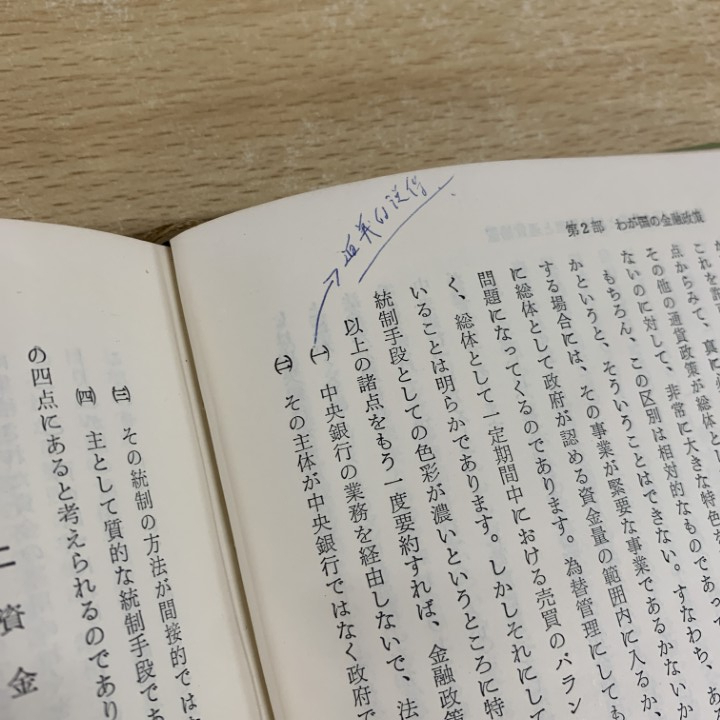 第2部 わが国の金融政策
点からみて、真に
その他の通貨政策が総体とし
ないのに対して、非常に大きな特色を
もちろん、この区別は相対的なものであって
かというと、そういうことはできない。すなわち、ある
する場合には、その事業が緊要な事業であるかないか
に総体として政府が認める資金量の範囲内に入るか、
問題になってくるのであります。為替管理にしても
く、総体として一定期間中における売買のバラン
いることは明らかであります。しかしそれにして
統制手段としての色彩が濃いというところに特
以上の諸点をもう一度要約すれば、金融政策
㈠ 中央銀行の業務を経由しないで、法
㈡ その主体が中央銀行ではなく政府で
㈢ その統制の方法が間接的では
㈣ 主として質的な統制手段であ
の四点にあると考えられるのであり
二 資金